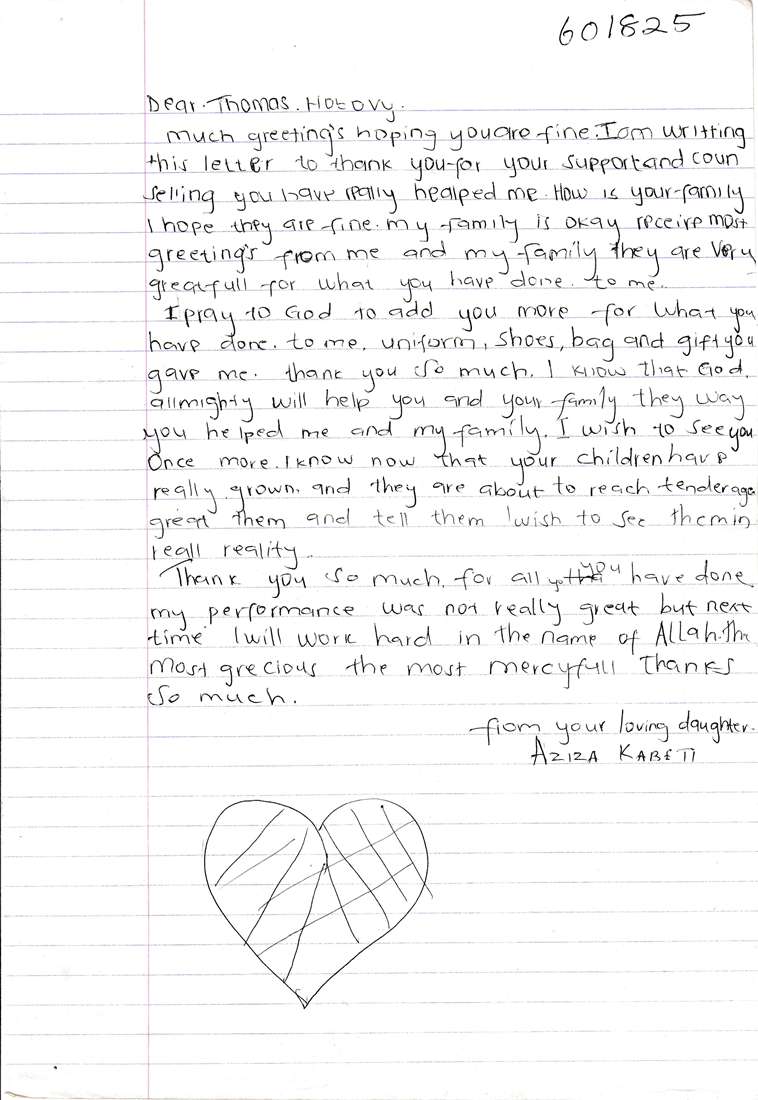 601825
Dear. Thomas. Hotovy.
much greeting's hoping you are fine. I am writting
this letter to thank you for your support and coun
selling you have really healped me. How is your family
I hope they are fine. my family is okay receive most
greeting's from me and my family they are very
greatfull for what you have done. to me.
I pray to God to add you more for what you
have done. to me. uniform, shoes, bag and gift you
gave me. thank you so much. I know that God.
allmighty will help you and your family they way
you helped me and my family. I wish to see you
once more. I know now that your children have
really grown. and they are about to reach tenderage
great them and tell them I wish to see them in
reall reality.
Thank you so much. for all you have done
my performance was not really great but next
time I will work hard in the name of Allah. the
most grecious the most mercyfull Thanks
so much.
from your loving daughter.
AZIZA KABETI